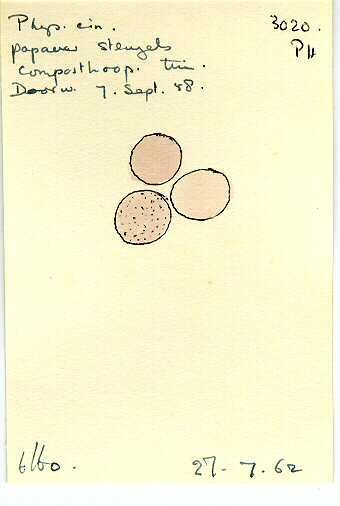 Phys. cin.
papaver stengels
composthoop. tuin.
Doorw. 7. Sept. 58.
3020.
27 - 7. 62